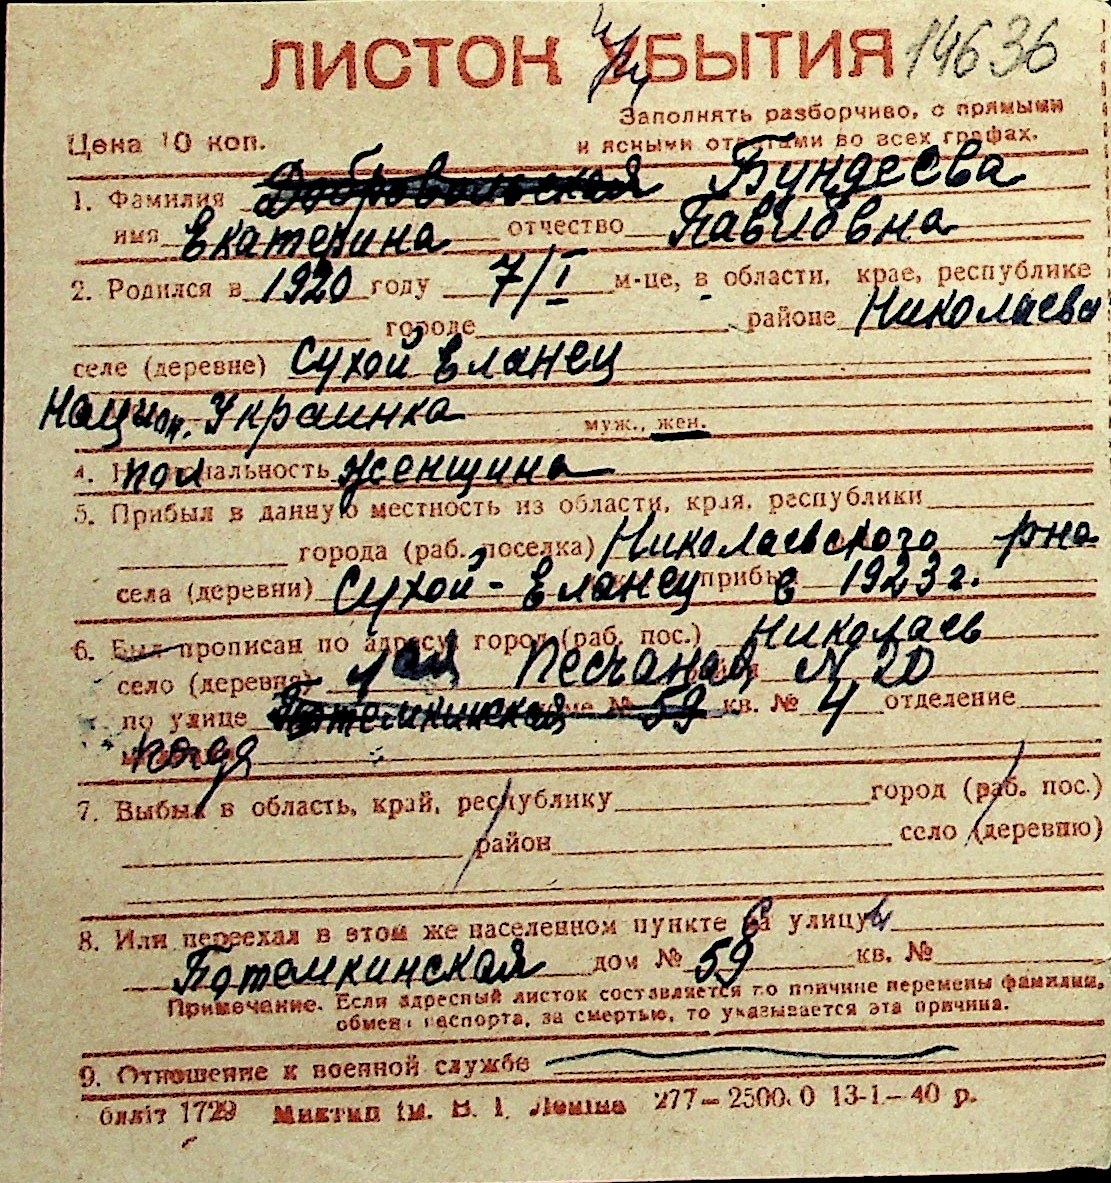 ЛИСТОК УБЫТИЯ 14636
Заполнять разборчиво, с прямыми
Цена 10 коп. и ясными ответами во всех графах.
1. Фамилия Добровольская Бундеева
имя Екатерина отчество Павловна
2. Родился в 1920 году 7/I м-це, в области, крае, республике
городе районе Николаевск
селе (деревне) Сухой Еланец
Национ. Украинка муж., жен.
4. пол женщина
5. Прибыл в данную местность из области, края, республики
города (раб. поселка) Николаевского р-на
села (деревни) Сухой-Еланец прибыл в 1923 г.
6. Был прописан по адресу: город (раб. пос.) Николаев
село (деревня) Песчаная N 20
по улице Потемкинская № 59 кв. № 4 отделение
7. Выбыл в область, край, республику город (раб. пос.)
район село (деревню)
8. Или переехал в этом же населенном пункте на улицу
Потемкинская дом № 59 кв. №
Примечание. Если адресный листок составляется по причине перемены фамилии,
обмена паспорта, за смертью, то указывается эта причина.
9. Отношение к военной службе
облліт 1729 Миктип ім. В. І. Леніна 277–2500.0 13-1–40 р.